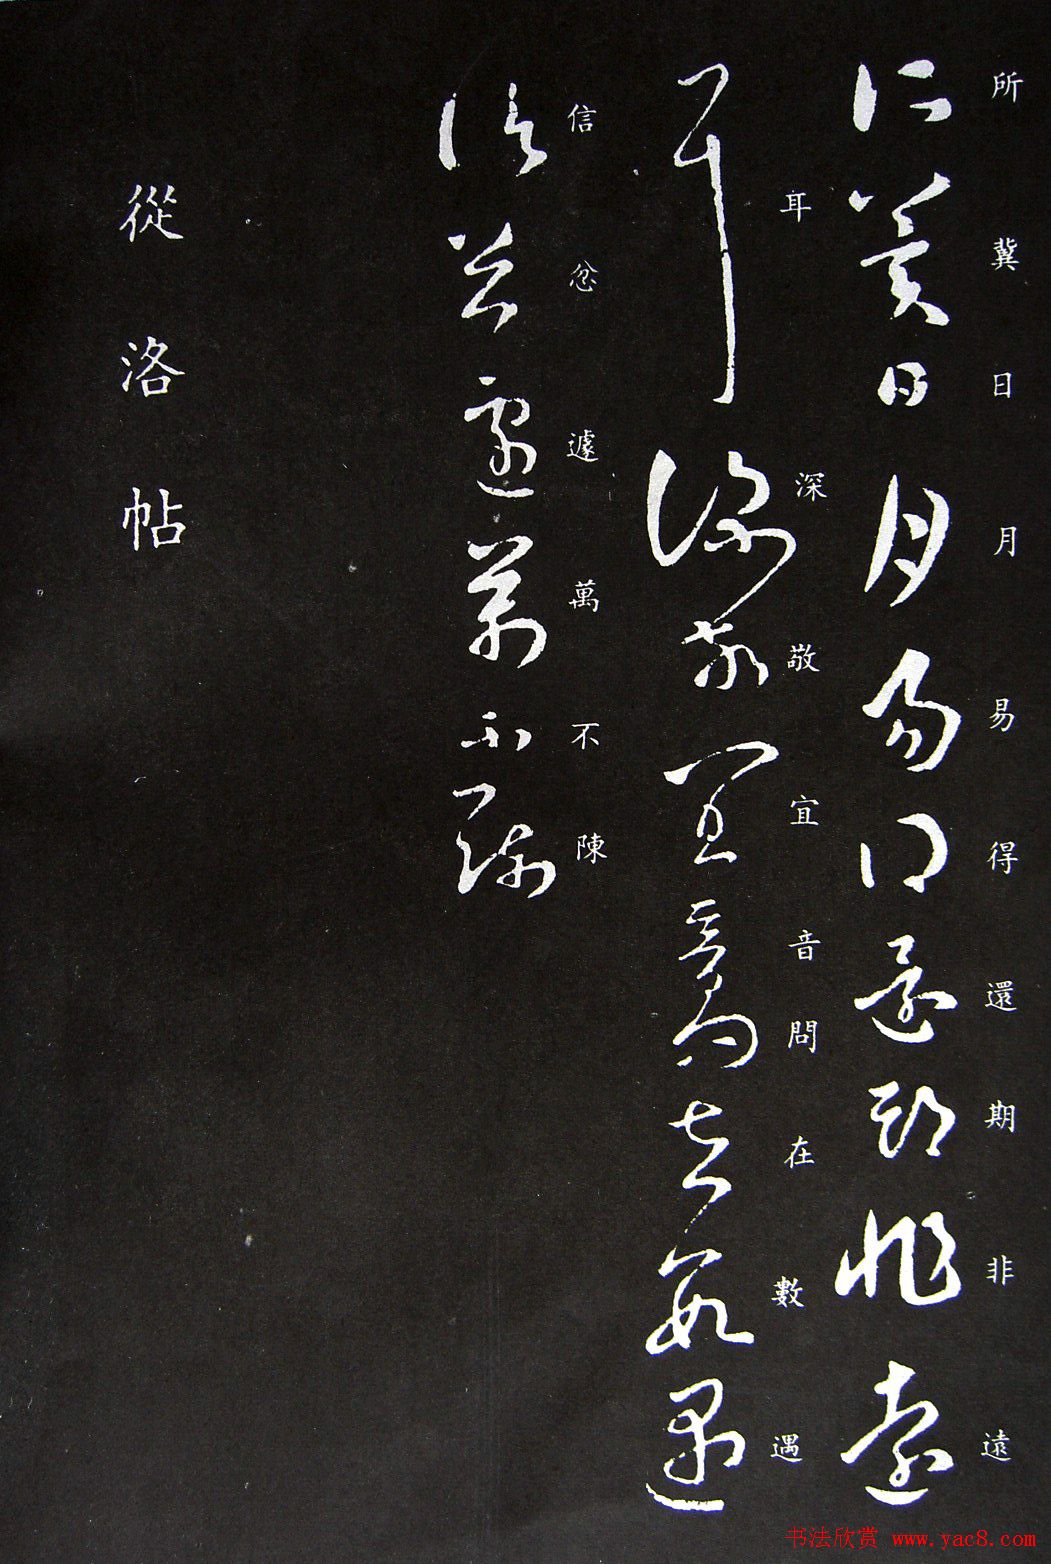 所冀日月易得還期非遠
耳深敬宜音問在數遇
信忿遽萬不陳
從洛帖
书法欣赏 www.yac8.com